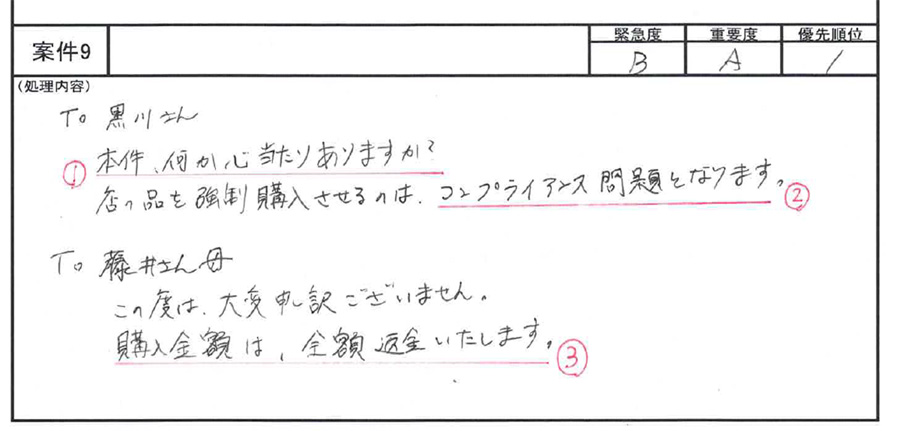 案件9
緊急度 重要度 優先順位
B A 1
(処理内容)
To 黒川さん
① 本件、何か心当たりありますか?
店の品を強制購入させるのは、コンプライアンス問題となります。②
To 藤井さん母
この度は、大変申し訳ございません。
購入金額は、全額返金いたします。③